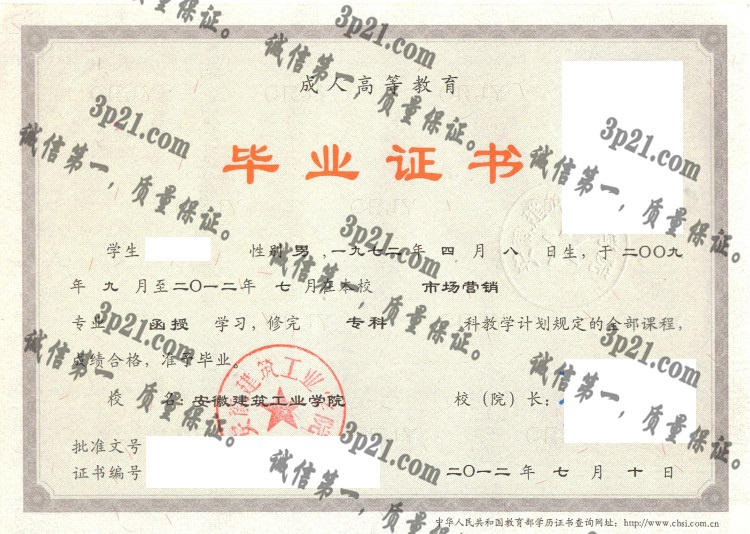 成人高等教育
毕业证书
学生 性别 男 ,一九七二年 四 月 八 日生, 于 二〇〇九
年 九 月至二〇一二年 七 月在本校 市场营销
专业 函授 学习, 修完 专科 科教学计划规定的全部课程,
成绩合格, 准予毕业。
校 名: 安徽建筑工业学院 校 (院) 长:
安徽建筑工业学院
批准文号
证书编号 二〇一二 年 七 月 十 日
中华人民共和国教育部学历证书查询网址: http://www.chsi.com.cn
3p21.com
诚信第一,质量保证。
3p21.com
诚信第一,质量保证。
3p21.com
诚信第一,质量保证。
3p21.com
诚信第一,质量保证。
3p21.com
诚信第一,质量保证。
3p21.com
诚信第一,质量保证。
3p21.com
诚信第一,质量保证。